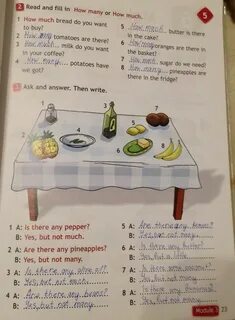 2 Read and fill in How many or How much.
5
1 How much bread do you want
to buy?
2 How many tomatoes are there?
3 How much milk do you want
in your coffee?
4 How many potatoes have
we got?
5 How much butter is there
in the cake?
6 How many oranges are there in
the basket?
7 How much sugar do we need?
8 How many pineapples are
there in the fridge?
3 Ask and answer. Then write.
1
2
3
4
5
6
7
8
1 A: Is there any pepper?
B: Yes, but not much.
2 A: Are there any pineapples?
B: Yes, but not many.
3 A: Is there any
B: Yes, but not much.
4 A: Are there any beans?
B: Yes, but not many.
5 A: Are there any
B: Yes, but not many.
6 A: Is there any butter?
B: Yes, but
7 A: Is there
B: Yes, but not many.
8 A:
B: Yes, but not many.
Module 3
23